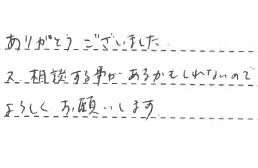 ありがとうございました.
又、相談する事があるかもしれないので
よろしくお願いします